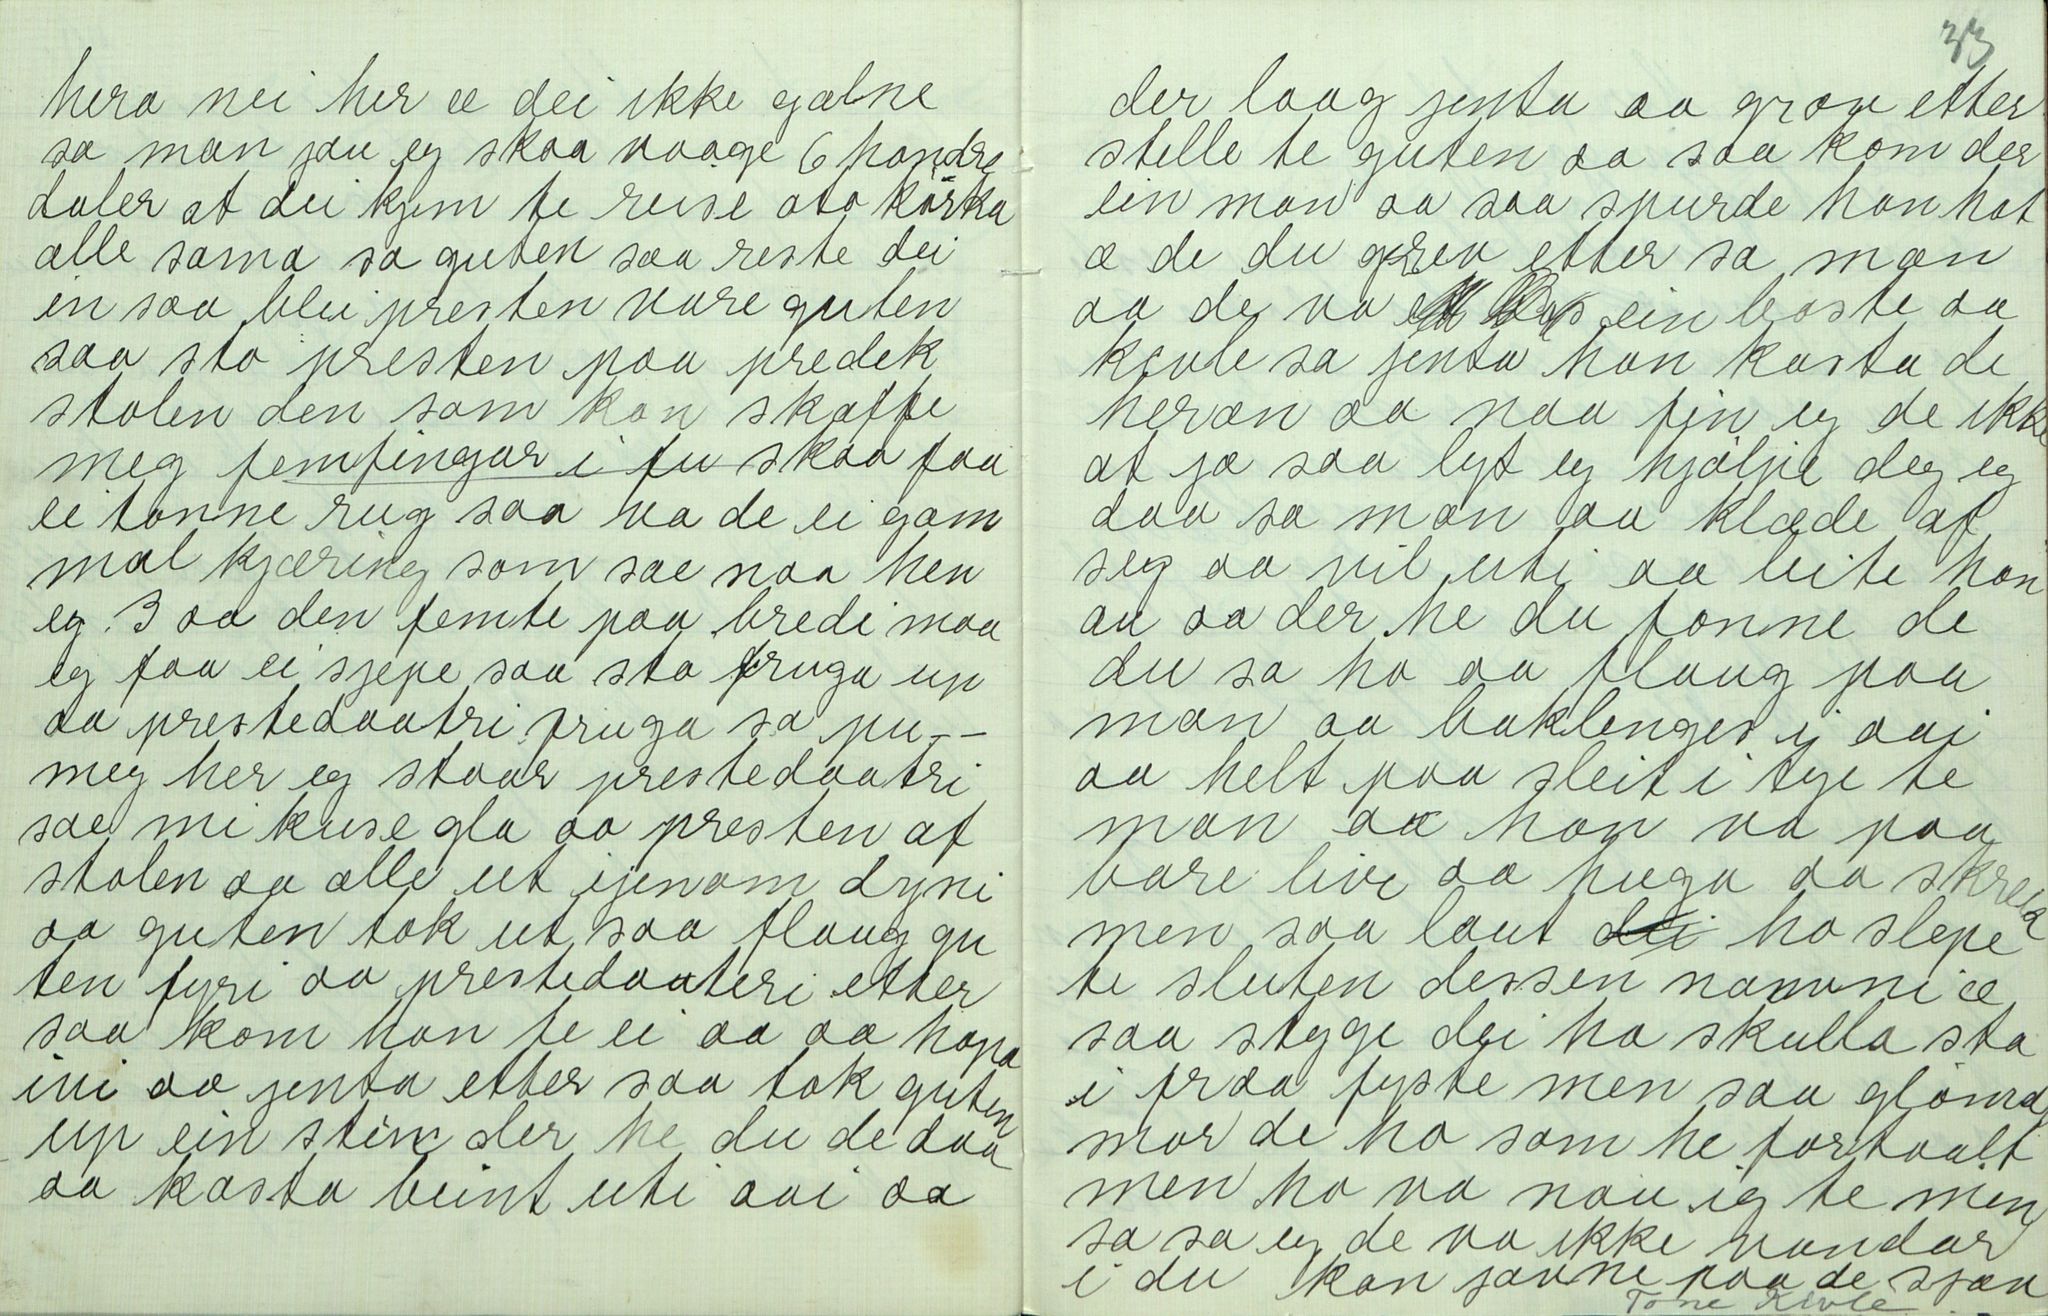 hera nei her æ dei ikke galne
sa man jau eg skaa vaage 6 hondre
daler at dei kjem te reise ato körka
alle sama sa guten saa reste dei
in saa blei presten vare guten
saa sto presten paa predek
stolen den som kan skaffe
meg femfingar i fu skaa faa
ei tonne rug saa va de ei gam
mal kjæring som sae naa hen
eg 3 aa den femte paa bredi maa
eg faa ei sjepe saa sto fruga up
aa prestedaatri fruga sa pu--
meg her eg staar prestedaatri
sae mi kuse gla aa presten af
stolen aa alle ut ijenom dyni
aa guten tok ut saa flaug gu
ten fyri aa prestedaateri etter
saa kom han te ei aa aa hopa
uti aa jenta etter saa tok guten
up ein stein der he du de daa
aa kasta beint uti aai aa
33
der laag jenta aa grov etter
stelle te guten aa saa kom der
ein man aa saa spurde han hot
æ de du grev etter sa man
aa de va ein boste aa
kevle sa jenta han kasta de
heran aa naa fin eg de ikke
at ja saa lyt eg hjölpe deg eg
daa sa man aa klæde af
seg aa vil uti aa leite han
au aa der he du fonne de
du sa ho aa flaug paa
man aa baklenges i aai
aa helt paa sleit i tye te
man aa han va paa
bare live aa huga aa skreik
men saa laut ho slepe
te sluten dessen navni æ
saa stygge dei ho skulla sta
i fraa fyste men saa glömde
mor de ho som he fortaalt
men ho va nau eg te men
sa sa eg de va ikke vandar
i du kan javne paa de sjæv
Tone Kivle